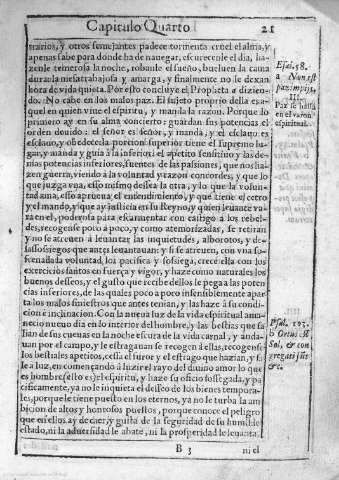 Capitulo Quarto
21
trarios, y otros semejantes padece tormenta cruel el alma, y
apenas sabe para donde ha de nauegar, escurecenle el dia, ha-
zenle temerosa la noche, robanle el sueño, bueluen la cama
dura: la mesa trabajosa y amarga, y finalmente no le dexan
hora de vida quieta. Por esto concluye el Propheta a dizien-
do. No cabe en los malos paz. El sujeto proprio della es a-
quel en quien viue el espiritu, y manda la razon. Porque lo
primero ay en su alma concierto y guardan sus potencias el
orden deuido: el señor es señor, y manda, y el esclauo es
esclauo, y obedece: la porcion superior tiene el supremo lu-
gar, y manda y guia à la inferior: el apetito sensitiuo y las de-
mas potencias inferiores, fuentes de las passiones, que nos ha-
zen guerra, viendo à la voluntad y razon concordes, y que lo
que juzga vna, esso mismo dessea la otra, y lo que la volun-
tad ama, esso aprueua el entendimiento, y que tiene el cetro
y el mando, y que ay justicia en su Reyno, y quien leuante va-
ra en el, poderosa para escarmentar con castigo à los rebel-
des, recogense poco à poco, y como atemorizadas, se retiran
y no se atreuen à leuantar las inquietudes, alborotos, y de-
sassossiegos que antes leuantauan: y si se atreuen, con vna so-
frenada la voluntad, los pacifica y sossiega, crece ella con los
exercicios santos en fuerça y vigor, y haze como naturales los
buenos desseos, y el gusto que recibe dellos se pega a las poten
cias inferiores, de las quales poco a poco insensiblemente apar
ta los malos siniestros que antes tenian, y las haze à su condi-
cion e inclinacion. Con la nueua luz de la vida espiritual ama-
necio nueuo dia en lo interior del hombre, y las bestias que sa
lian de sus cueuas en la noche escura de la vida carnal, y anda-
uan por el campo, y le estragauan se recogen à ellas, recogense
los bestiales apetitos, cessa el furor y el estrago que hazian, y sa
le a luz, en començando à luzir el rayo del diuino amor lo que
es hombre (esto es) el espiritu, y haze su oficio sossegada, y pa
cificamente, ya no le inquieta el desseo de los bienes tempora-
les, porque le tiene puesto en los eternos, ya no le turba la am
bicion de altos y hontosos puestos, porque conoce el peligro
que en ellos ay de caer, y gusta de la seguridad de su humilde
estado, ni la aduersidad le abate, ni la prosperidad le leuanta,
B 3
ni el
Esai. 58.
a Non est
pax impijs,
III.
Paz se halla
en el varon
espiritual.
IIII.
Psal. 103.
b Ortus est
Sol, & con
gregati sũt
&c.